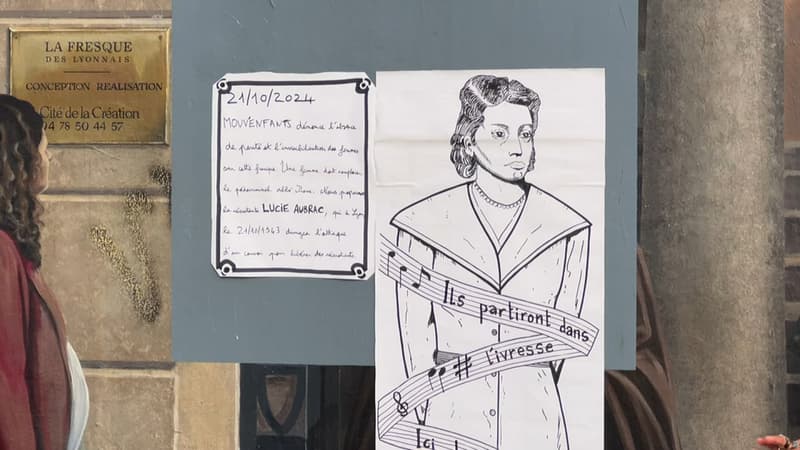 LA FRESQUE
DES LYONNAIS
CONCEPTION REALISATION
Cité de la Création
04 78 50 44 57
21/10/2024
MOUVENFANTS dénonce l'absence
de parité et l'invisibilisation des femmes
sur cette fresque. Une femme doit remplacer
le pédocriminel abbé Pierre. Nous proposons
la résistante LUCIE AUBRAC, qui à Lyon
le 21/10/1943 dirigea l'attaque
d'un convoi pour libérer des résistants
Ils partiront dans
l'ivresse
Ici